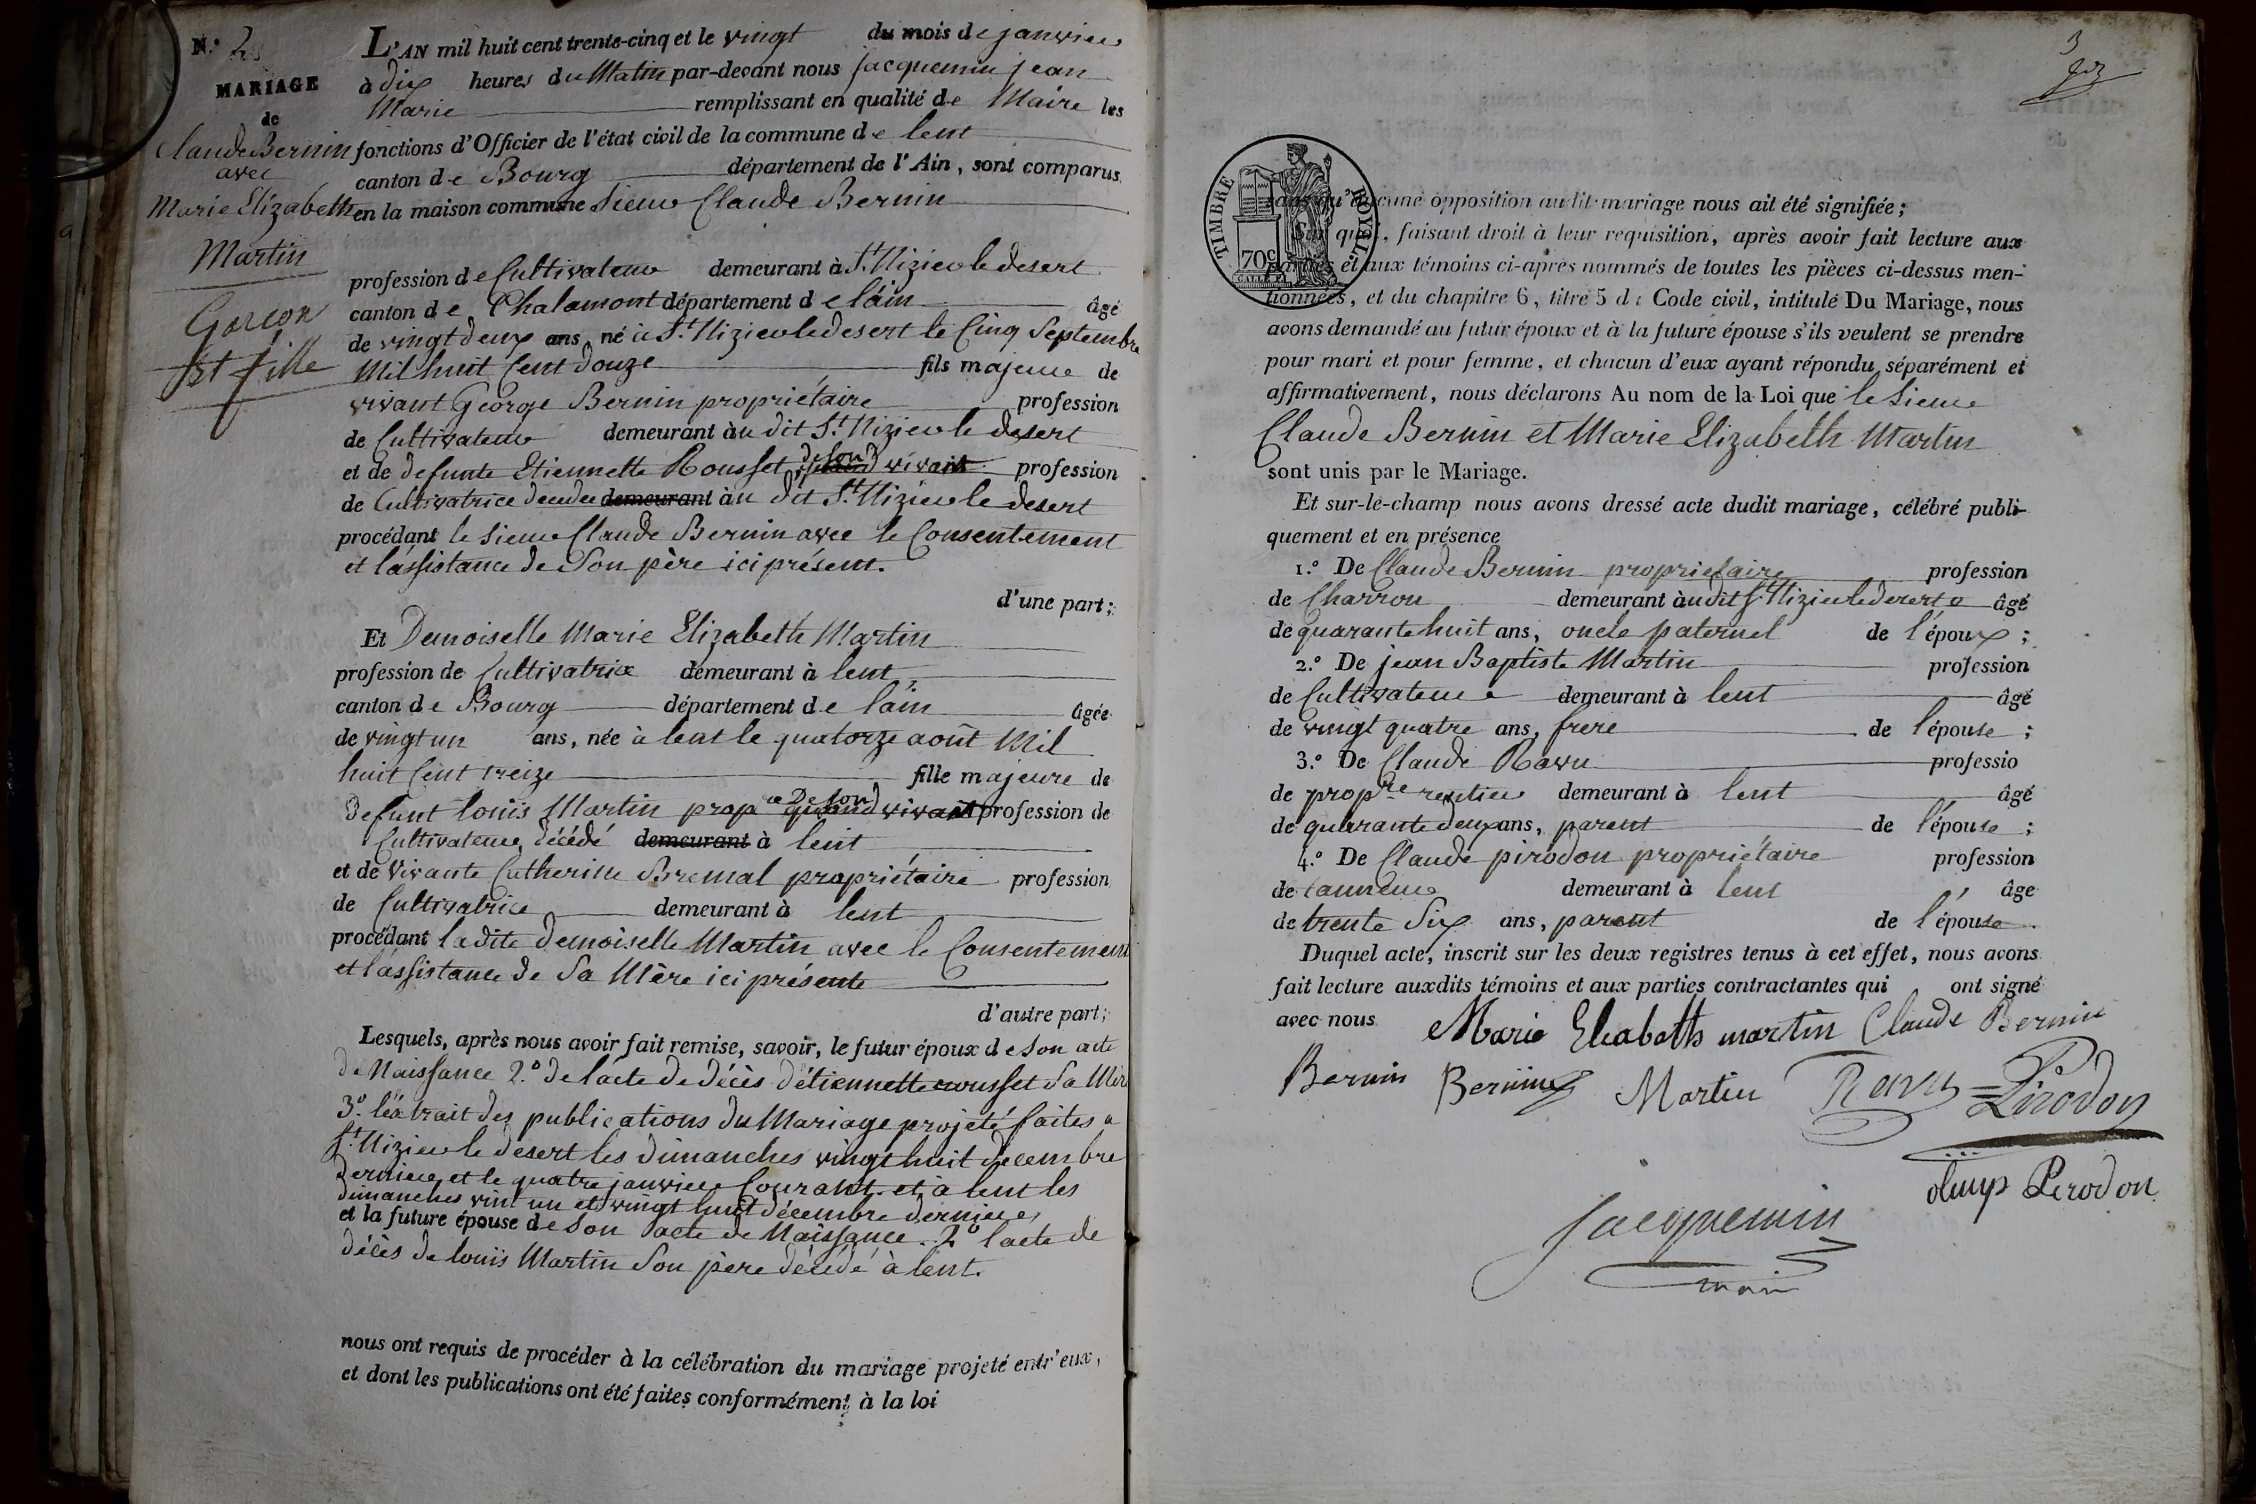 N.º 2
MARIAGE
de
Claude Bernin
avec
Marie Elizabeth
Martin
Garcon
et fille
L'AN mil huit cent trente-cinq et le vingt du mois de janvier
à dix heures du Matin par-devant nous jacquemin jean
Marie remplissant en qualité de Maire les
fonctions d'Officier de l'état civil de la commune de lent
canton de Bourg département de l'Ain, sont comparus
en la maison commune Sieur Claude Bernin
profession de Cultivateur demeurant à St. Nizier le desert
canton de Chalamont département de lain âgé
de vingt deux ans, né à St. Nizier le desert le Cinq Septembre
Mil huit Cent douze fils majeur de
vivant George Bernin propriétaire profession
de Cultivateur demeurant àu dit St. Nizier le desert
et de defunte Etiennette Rousset de son vivant profession
de Cultivatrice decedee demeurant àu dit St. Nizier le desert
procédant le Sieur Claude Bernin avec le Consentement
et l'assistance de Son père ici présent.
d'une part;
Et Demoiselle Marie Elizabeth Martin
profession de Cultivatrice demeurant à lent
canton de Bourg département de lain âgée
de vingt un ans, née à lent le quatorze août Mil
huit Cent treize fille majeure de
defunt louis Martin prop re de son vivant profession de
Cultivateur décédé demeurant à lent
et de Vivante Catherine Bremal propriétaire profession
de Cultivatrice demeurant à lent
procédant la dite demoiselle Martin avec le Consentement
et l'assistance de Sa Mère ici présente
d'autre part;
Lesquels, après nous avoir fait remise, savoir, le futur époux de son acte
de Naissance 2.º de lacte de décès détiennette rousset Sa Mère
3.º lextrait des publications du Mariage projeté faites a
St. Nizier le desert les dimanches vingt huit décembre
dernier et le quatre janvier Courant. et à lent les
dimanches vint un et vingt huit décembre dernier,
et la future épouse de Son acte de Naissance. 2º lacte de
décès de louis Martin Son père décédé à lent.
nous ont requis de procéder à la célébration du mariage projeté entr'eux,
et dont les publications ont été faites conformément à la loi
3
TIMBRE ROYAL
70c
sans qu'aucune opposition audit mariage nous ait été signifiée;
Sur quoi, faisant droit à leur requisition, après avoir fait lecture aux
parties et aux témoins ci-après nommés de toutes les pièces ci-dessus men-
tionnées, et du chapitre 6, titre 5 du Code civil, intitulé Du Mariage, nous
avons demandé au futur époux et à la future épouse s'ils veulent se prendre
pour mari et pour femme, et chacun d'eux ayant répondu séparément et
affirmativement, nous déclarons Au nom de la Loi que le Sieur
Claude Bernin et Marie Elizabeth Martin
sont unis par le Mariage.
Et sur-le-champ nous avons dressé acte dudit mariage, célébré publi-
quement et en présence
1.º De Claude Bernin proprietaire profession
de Charron demeurant àudit St. Nizier le desert âgé
de quarante huit ans, oncle paternel de l'époux;
2.º De jean Baptiste Martin profession
de Cultivateur demeurant à lent âgé
de vingt quatre ans, frere de l'épouse;
3.º De Claude Ravu professio
de propre rentier demeurant à lent âgé
de quarante deux ans, parent de l'épouse;
4.º De Claude pirodon propriétaire profession
de tanneur demeurant à lent âge
de trente Six ans, parent de l'épouse.
Duquel acte, inscrit sur les deux registres tenus à cet effet, nous avons
fait lecture auxdits témoins et aux parties contractantes qui ont signé
avec nous Marie Elisabeth martin Claude Bernin
Bernin Bernin Martin Ravu Pirodon
Perodon
Jacquemin
maire